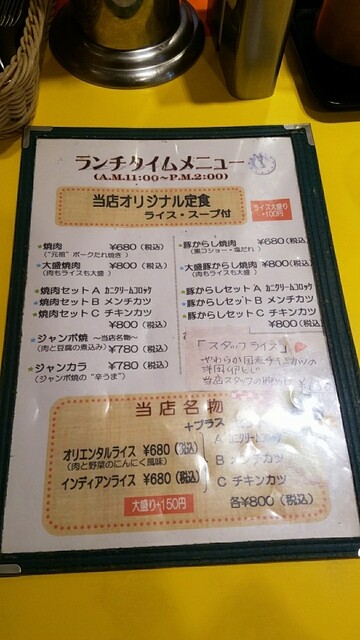 ランチタイムメニュー
(A.M.11:00~P.M.2:00)
当店オリジナル定食
ライス・スープ付
ライス大盛り
+100円
焼肉 ¥680(税込)
("元祖" ポークたれ焼き)
大盛焼肉 ¥800(税込)
(肉もライスも大盛)
焼肉セットA カニクリームコロッケ
焼肉セットB メンチカツ
焼肉セットC チキンカツ
¥800(税込)
ジャンボ焼 ~当店名物~
(肉と豆腐の煮込み) ¥780(税込)
ジャンカラ ¥780(税込)
(ジャンボ焼の"辛うま")
豚からし焼肉 ¥680(税込)
(黒コショー・塩だれ)
大盛豚からし焼肉 ¥800(税込)
(肉もライスも大盛)
豚からしセットA カニクリームコロッケ
豚からしセットB メンチカツ
豚からしセットC チキンカツ
¥800(税込)
「スタッフライス」
やわらか国産チキンカツの
当店スタッフの
当店名物
+プラス
オリエンタルライス ¥680(税込)
(肉と野菜のにんにく風味)
インディアンライス ¥680(税込)
A カニクリームコロッケ
B メンチカツ
C チキンカツ
大盛り+150円
各¥800(税込)